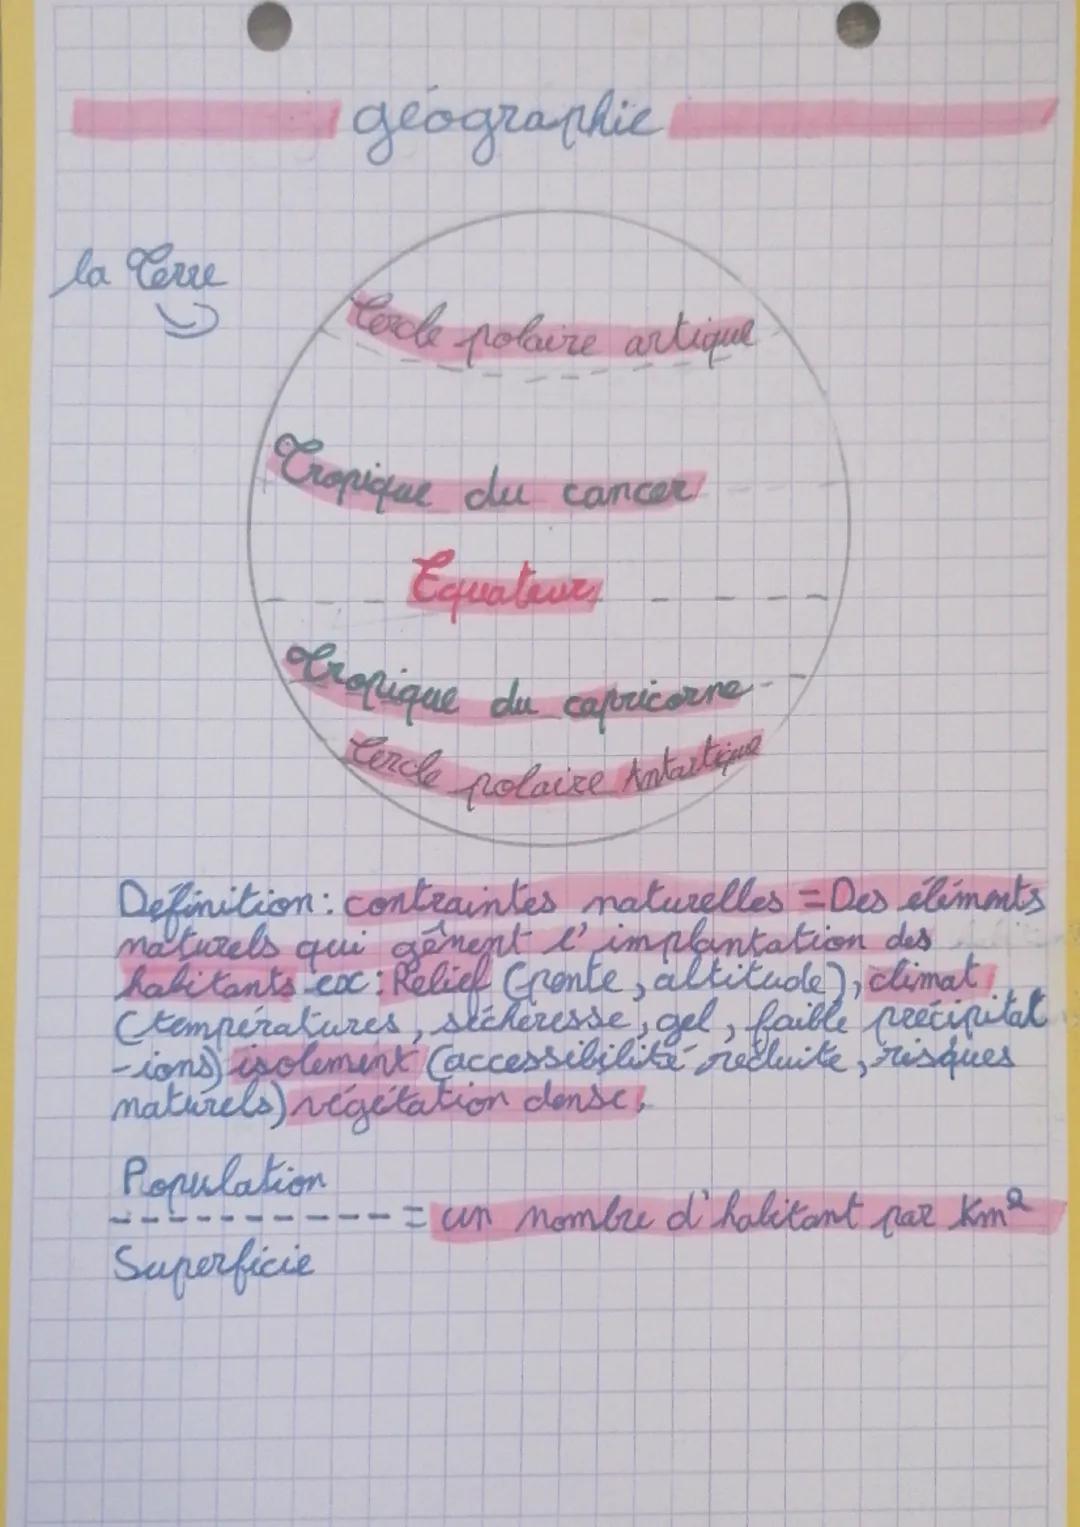 géographie
la Terre
Cercle polaire artique
Tropique du cancer
Equateur
Tropique du capricorne
Cercle polaire Antartique
Definition : contraintes naturelles = Des éléments
naturels qui gênent l'implantation des
habitants ex : Relief (pente, altitude), climat
(températures, sécheresse, gel, faible précipitat
-ions) isolement (accessibilité réduite, risques
naturels) végétation dense.
Population
---------- = un nombre d'habitant par Km²
Superficie